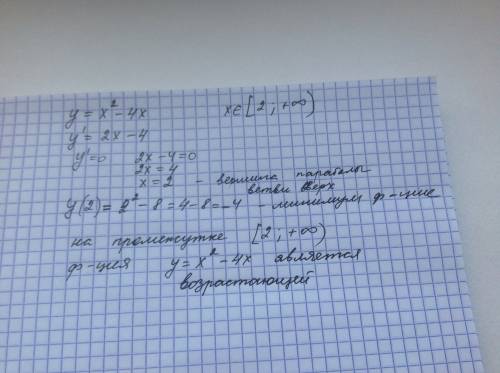 y = x² - 4x    x∈[2; +∞)
y' = 2x - 4
y'=0    2x-4=0
2x = 4
x = 2 - вершина параболы
ветви вверх
y(2) = 2² - 8 = 4 - 8 = -4 минимум ф-ции
на промежутке [2; +∞)
ф-ция y = x² - 4x является
возрастающей